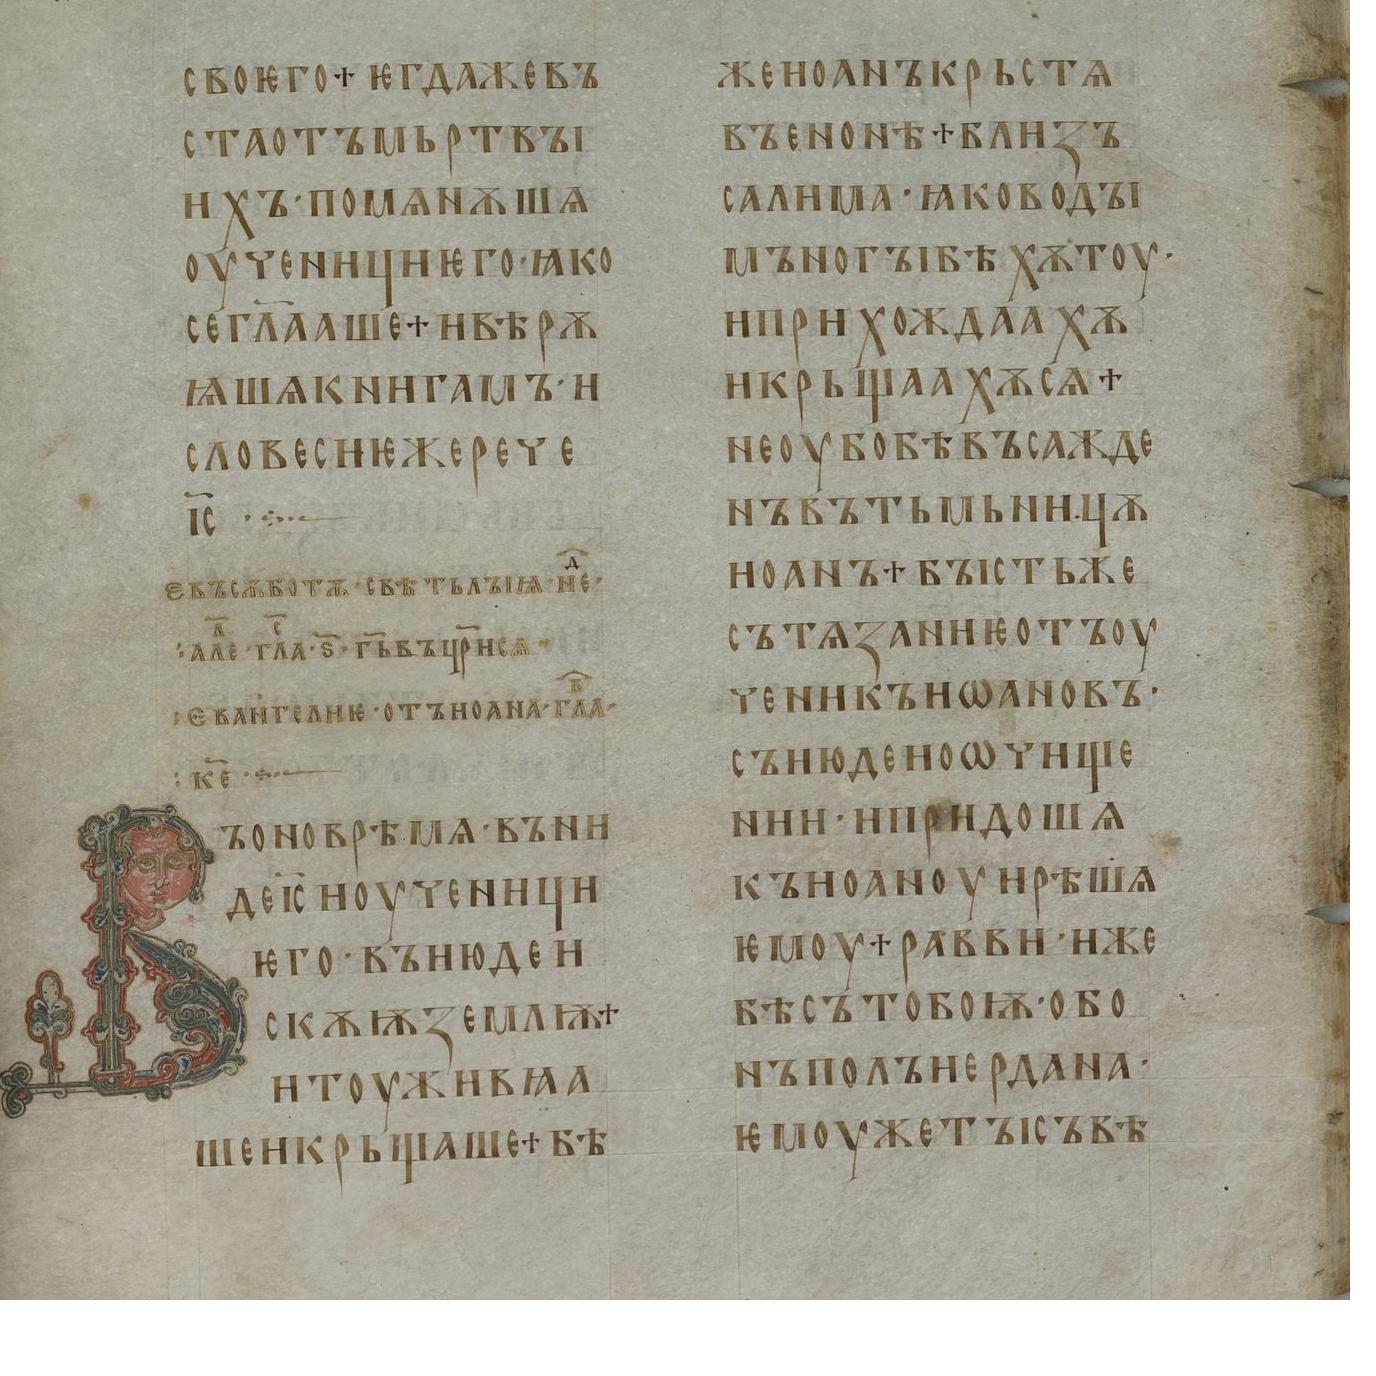 своѥго+ ѥгдажевъ
стаотъмьртвъі
ихъ·помѧнѫшѧ
оученициѥго·ꙗко
сегл҃ааше+ивѣрѫ
ꙗшѧкнигамъ·и
словесиѥжерече
іс҃
Євъсѫботѫ·свѣтьлъіѩ·не·д҃
:але·л҃ гла·с҃ ѕ҃·гь҃въцр҃исѧ·
:Євангелиѥ·отъиоана·гл҃а·в҃·
:ке҃·
Въоноврѣмѧ·въни
деіс҃ иоученици
ѥго·въиюдеи
скѫѭземлѭ+
итоуживꙗа
шеикрьщаше+бѣ
жеиоанъкрьстѧ
въенонѣ+близъ
салима·ꙗководъі
мъногъібѣхѫтоу·
иприхождаахѫ
икрьщаахѫсѧ+
неоубобѣвъсажде
нъвътьмьницѫ
иоанъ+бъістьже
сътѧзаниѥотъоу
ченикъиѡановъ·
съиюдеиоѡчище
нии·ипридошѧ
къиоаноуирѣшѧ
ѥмоу+равви·иже
бѣсътобоѭ·обо
нъполъиердана·
ѥмоужетъісъвѣ